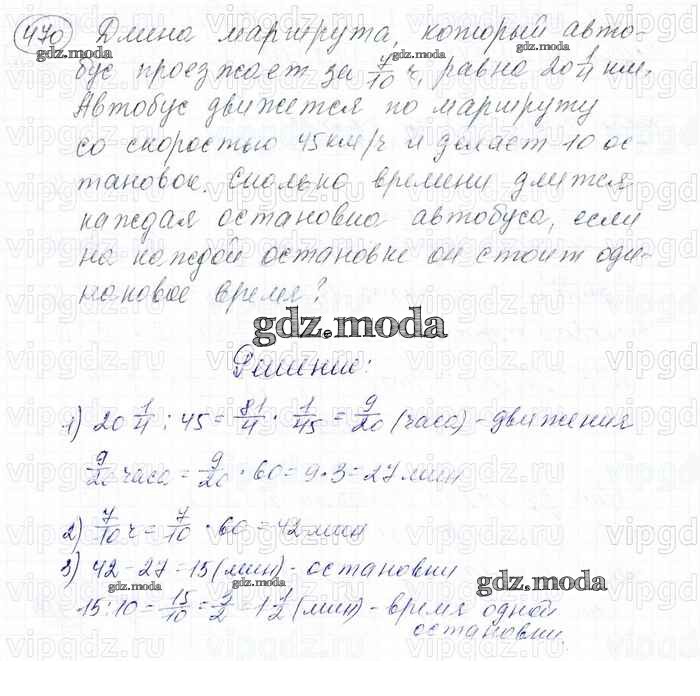 470 Длина маршрута, который авто-
бус проезжает за 7/10 ч, равна 20 1/4 км.
Автобус движется по маршруту
со скоростью 45 км/ч и делает 10 ос-
тановок. Сколько времени длится
каждая остановка автобуса, если
на каждой остановке он стоит оди-
наковое время?
gdz.moda
Решение:
1) 20 1/4 : 45 = 81/4 · 1/45 = 9/20 (часа) - движения
9/20 часа = 9/20 · 60 = 9 · 3 = 27 мин
2) 7/10 ч = 7/10 · 60 = 42 мин
3) 42 - 27 = 15 (мин) - остановки
15 : 10 = 15/10 = 3/2 = 1 1/2 (мин) - время одной
остановки.